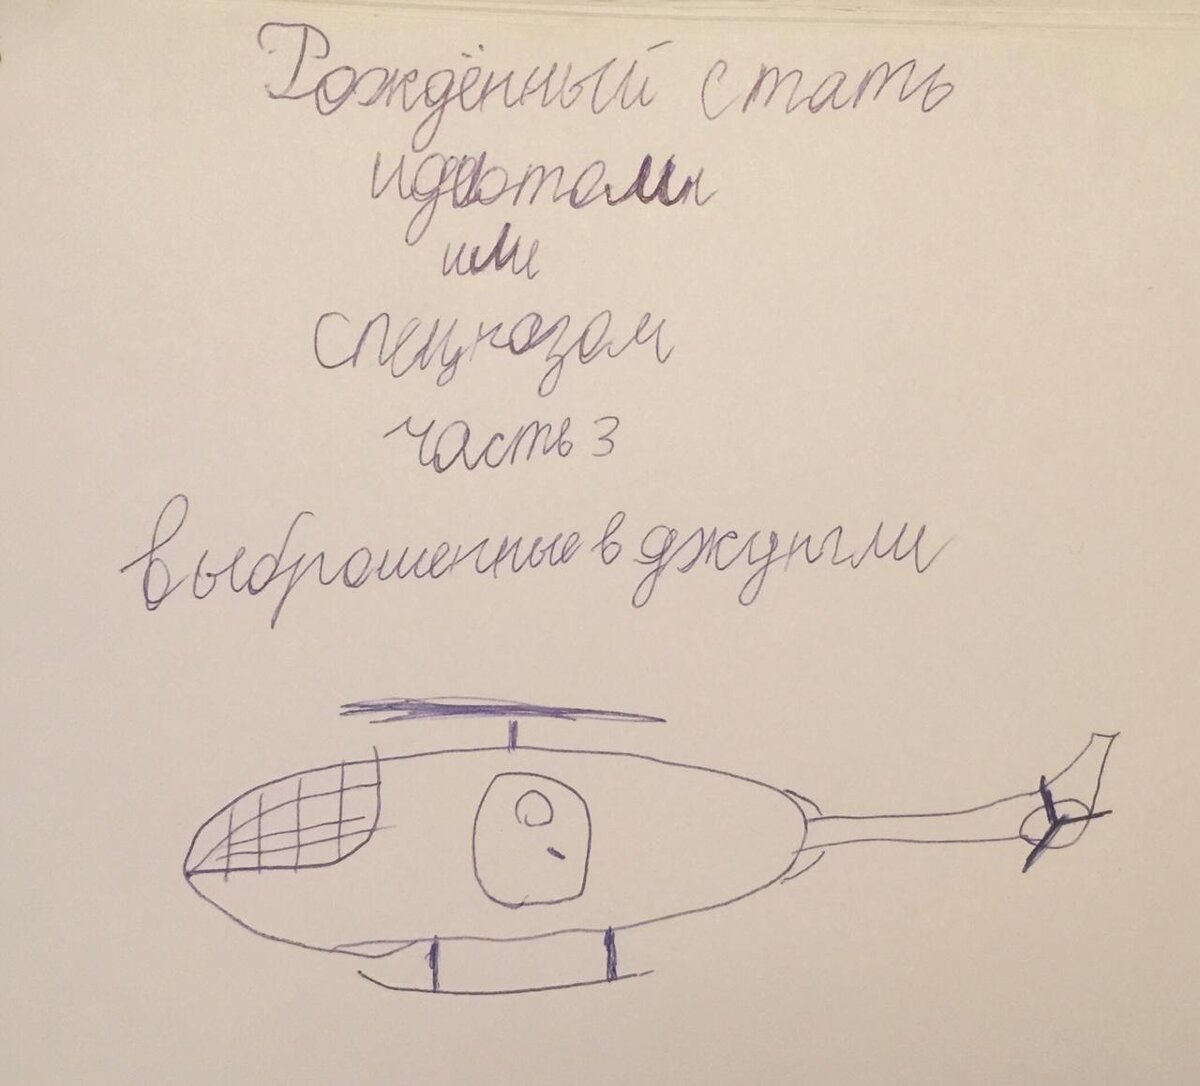 Рождённый стать
идиотами
или
спецназом
часть 3
выброшенные в джунгли